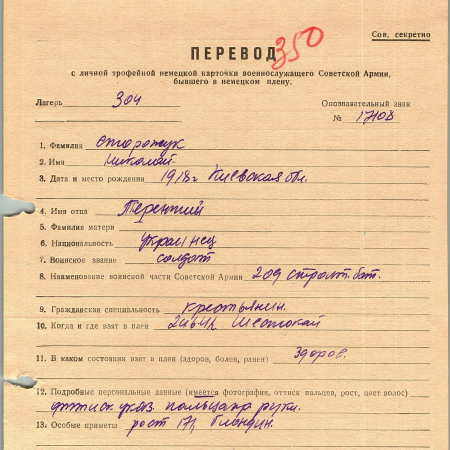 Сов. секретно
350
ПЕРЕВОД
с личной трофейной немецкой карточки военнослужащего Советской Армии,
бывшего в немецком плену.
Лагерь 304
Опознавательный знак
№ 17108
1. Фамилия Сторожук
2. Имя Николай.
3. Дата и место рождения 1918г Киевская обл.
4. Имя отца Терентий
5. Фамилия матери
6. Национальность украинец
7. Воинское звание солдат
8. Наименование воинской части Советской Армии 209 строит. бат.
9. Гражданская специальность крестьянин.
10. Когда и где взят в плен
11. В каком состоянии взят в плен (здоров, болен, ранен) здоров.
12. Подробные персональные данные (имеется фотография, оттиск пальцев, рост, цвет волос)
оттиск указ. пальца пр руки.
13. Особые приметы рост 171, блондин.